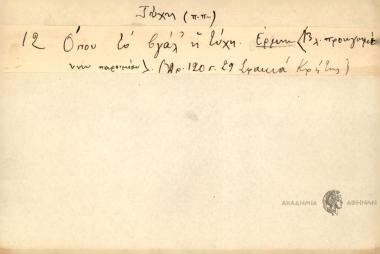 Τύχη (π.π.)
12 Όπου το βγάλ' η τύχη. Ερμην. (Βλ. προηγουμέ
νην παροιμίαν). (Αρ. 120 σ. 29 Σφακιά Κρήτης)
ΑΚΑΔΗΜΙΑ ΑΘΗΝΩΝ